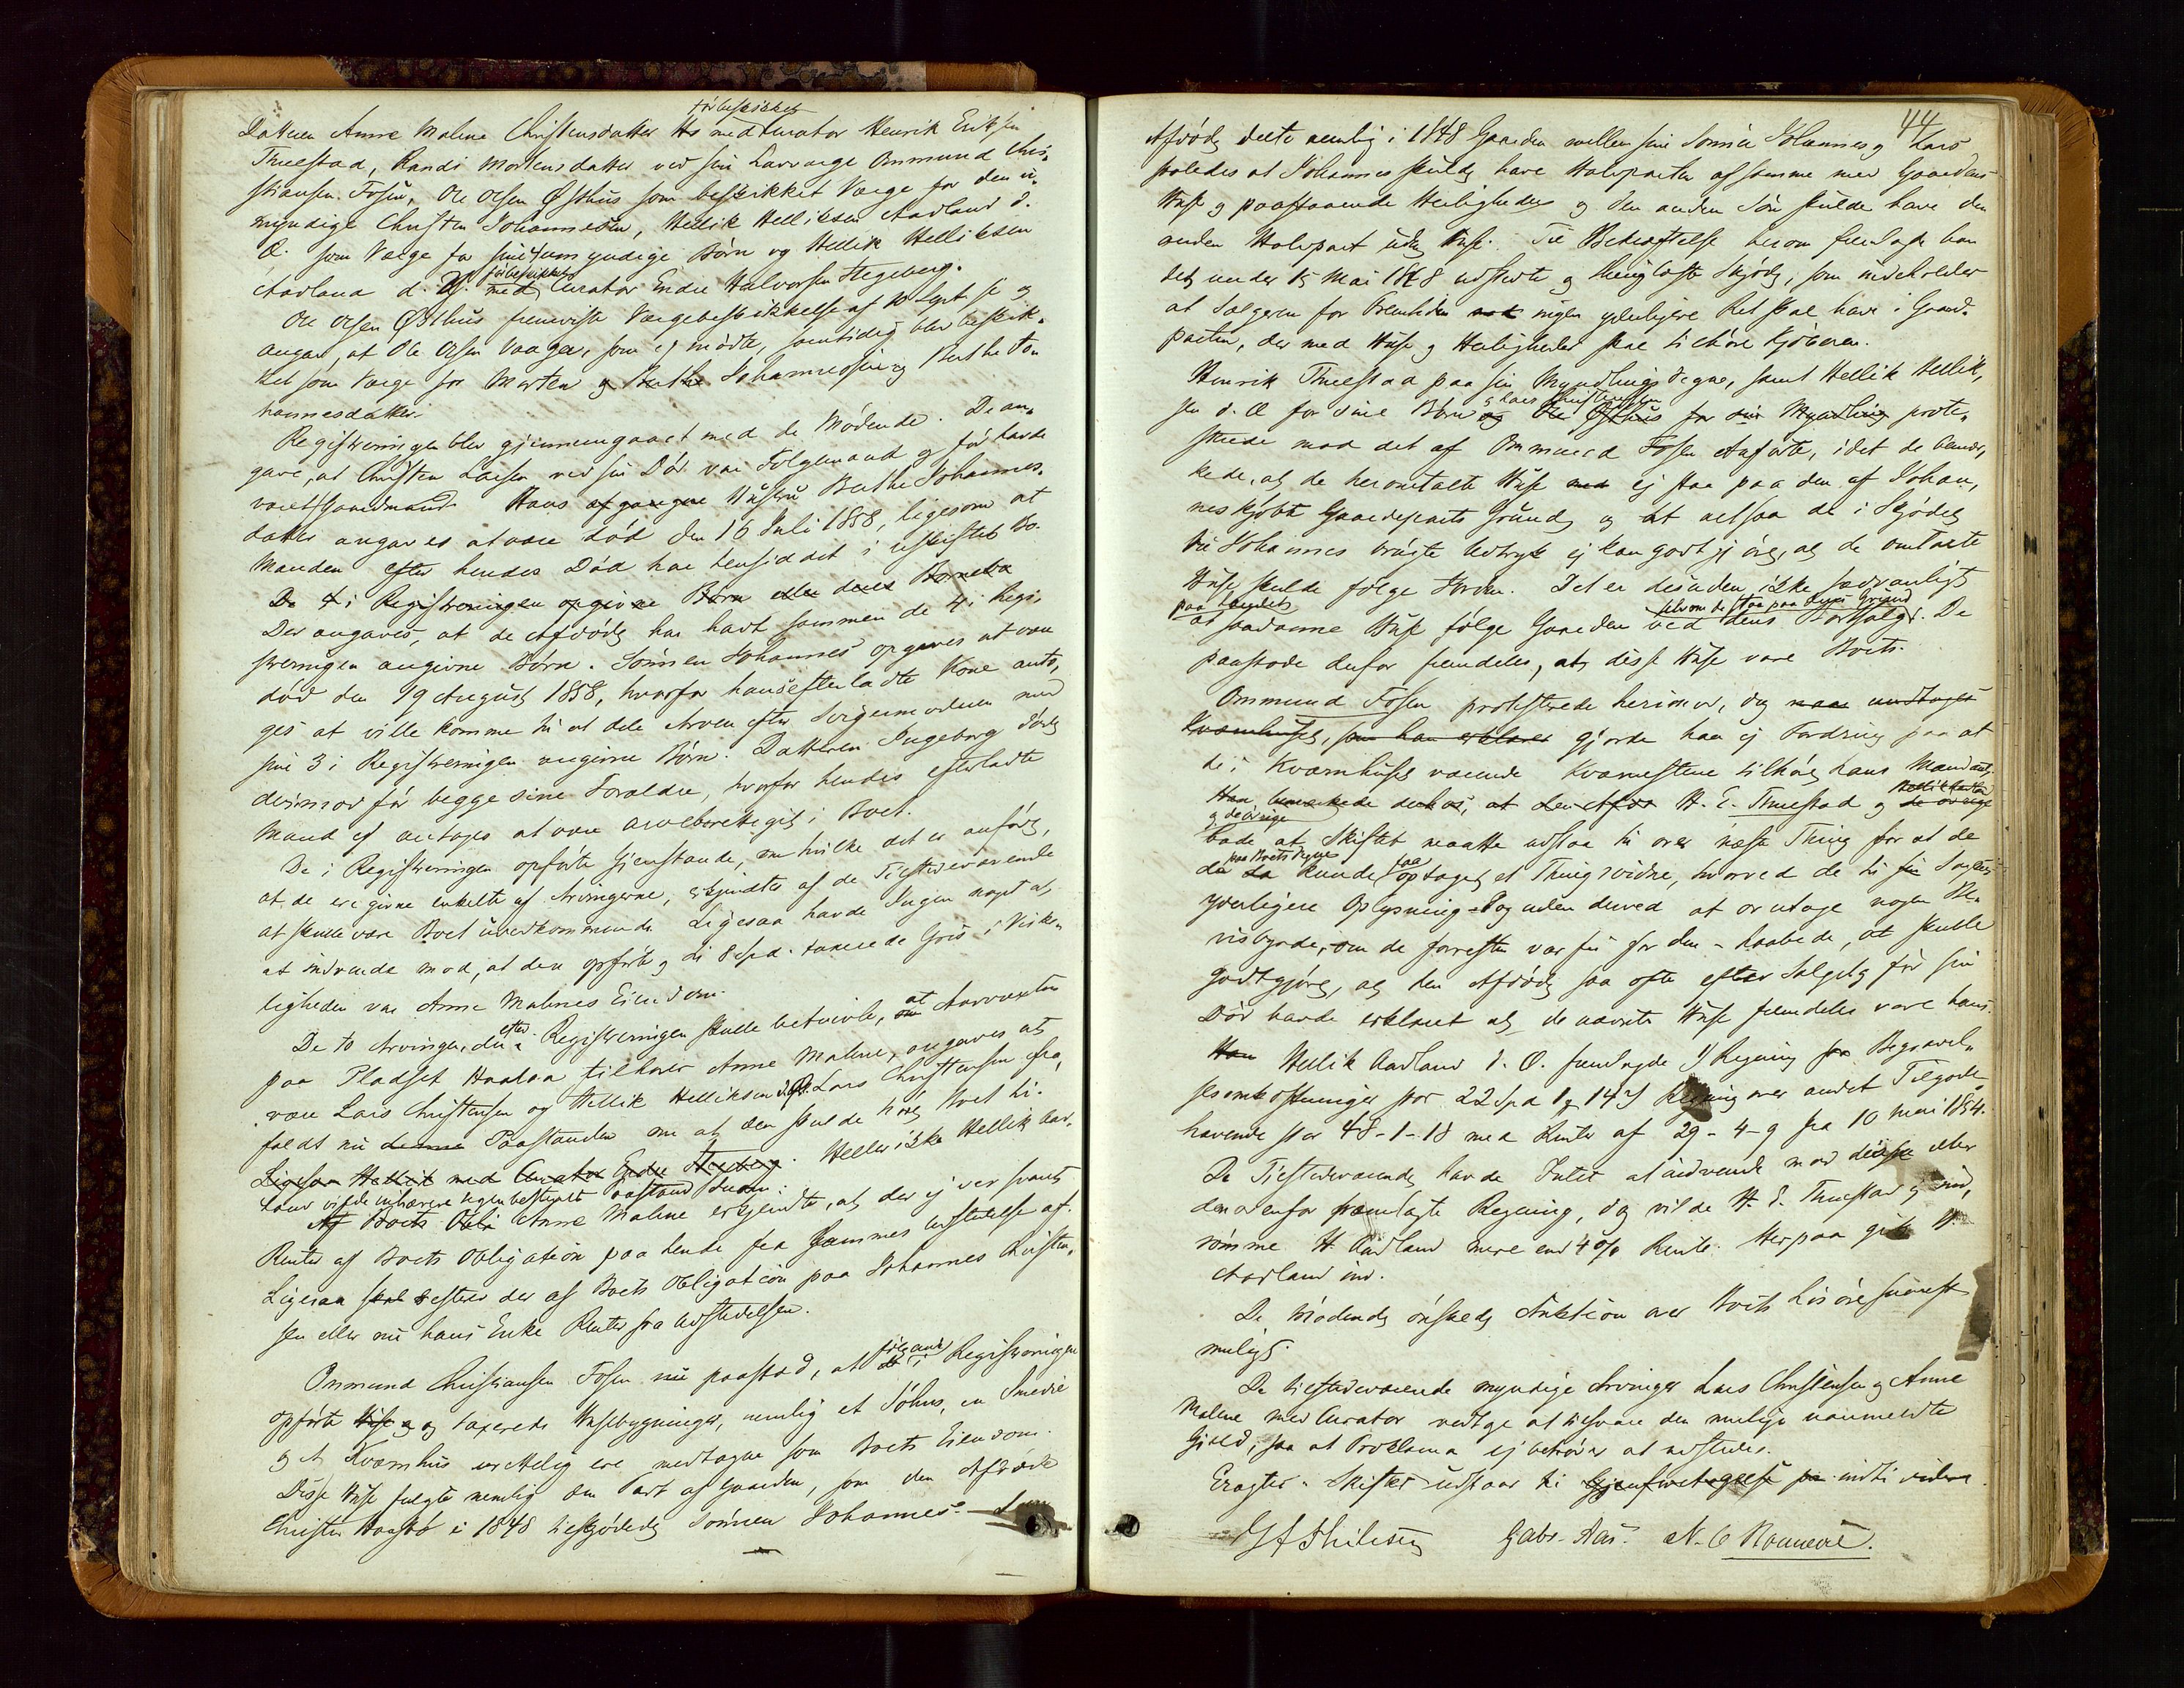 førbeskikket
Datteren Anne Malene Christensdatter Hs med Curator Henrik Eriksen
Thuestad, Randi Mortensdatter ved sin Lavværge Ommund Chri„
stiansen Fosen, Ole Olsen Østhus som beskikket Værge for den u„
myndige Christen Johannessen, Hellik Helliksen Aadland d.
Æ. som Værge for sine umyndige Børn og Hellik Helliksen
Aadland d. Y. med førbeskikket Curator Endre Halvorsen Stegeberg.
Ole Olsen Østhus fremviste Værgebeskikkelse af 10 Sept. sc og
angav, at Ole Olsen Vaage, som ej mødte, samtidig blev beskik„
ket som Værge for Morten og Berthe Johannessen og Berthe Jo„
hannesdatter.
Registreringen blev gjennemgaaet med de Mødende. De an„
gave, at Christen Larsen ved sin Død var Følgemand og før havde
været Gaardmand. Hans afgangne Hustru Berthe Johannes„
datter angaves at være død den 16 Juli 1858, ligesom at
Manden efter hendes Død har hensiddet i uskiftet Bo.
De 4 i Registreringen opgivne Børn eller deres Børnebø
Der angaves, at de Afdøde har havt sammen de 4 i Regi„
streringen angivne Børn. Sønnen Johannes opgaves at være
død den 19 August 1858, hvorfor hans efterladte Kone anto„
ges at ville komme til at dele Arven efter Svigermoderen med
sine 3 i Registreringen angivne Børn. Datteren Ingeborg døde
derimod før begge sine Forældre, hvorfor hendes efterladte
Mand ej antages at være arveberettiget i Boet.
De i Registreringen opførte Gjenstande, om hvilke det er anført,
at de ere givne enkelte af Arvingerne, erkjendtes af de Tilstedeværende
at skulle være Boet uvedkommende. Ligesaa havde Ingen noget at
at indvende mod, at den opførte og til 8 Spd. taxerede Gris i Virke„
ligheden var Anne Malenes Eiendom.
De to Arvinger, der efter Registreringen skulle betvivle, at Aarvæxten
paa Pladset Haaland tilhører Anne Malene, angaves at
være Lars Christensen og Hellik Helliksen d.Æ. Lars Christensen fra„
faldt nu denne Paastanden om at den skulde høre Boet til.
Ligesaa Hellik med Curator Endre Stegeberg. Heller ikke Hellik Aad„
land vilde nedlægge nogen bestemt Paastand herom.
Af Boets Obli Anne Malene erkjendte, at der ej var svaret
Renter af Boets Obligation paa hende fra sammes Udstedelse af.
Ligesaa skal restere der af Boets Obligation paa Johannes Christen„
sen eller nu hans Enke Renter fra Udstedelsen.
Ommund Christiansen Fosen nu paastod, at følgende i Registreringen
opførte Huse og og taxerede Husebygninger, nemlig et Søhus, en Smedie
og et Kvernhus urettelig ere medtagne som Boets Eiendom.
Disse Huse fulgte nemlig den Part af Gaarden, som den Afdøde
Christen Haastø i 1848 tilskjødede Sønnen Johannes.
44
Afdøde delte nemlig i 1848 Gaarden mellem sine Sønner Johannes og Lars
saaledes at Johannes skulde have Halvparten af samme med Gaardens
Huse og paastaaende Herligheder og den anden Søn skulde have den
anden Halvpart uden Huse. Til Bekræftelse herom fremlagde han
det under 15 Mai 1848 udstedte og thinglæste Skjøde, som indeholder
at Sælgeren for Fremtiden ingen yderligere Ret skal have i Gaard„
parten, der med Huse og Herligheder skal tilhøre Kjøberen.
Henrik Thuestad paa sin Myndlings Vegne, samt Hellik Hellik„
sen d. Æ for sine Børn og Lars Christensen og Ole Østhus for sin Myndling prote„
sterede mod det af Ommund Fosen Anførte, idet de bemær„
kede, at de heromtalte Huse ej staa paa den af Johan„
nes kjøbte Gaardeparts Grund, og at altsaa de i Skjødet
til Johannes brugte Udtryk ej kan godtgjøre, at de omtalte
Huse skulde følge Jorden. Det er desuden ikke sædvanligt
paa Landet at saadanne Huse følge Gaarden ved dens Bortsalg selvom de staa paa dens Grund. De
paastode derfor fremdeles, at disse Huse vare Boets.
Ommund Fosen protesterede herimod, dog maa undtages
Kværnhuset, som han erklærer gjorde han ej Fordring paa at
de i Kværnhuset værende Kværnestene tilhøre hans Mandant.
Han bemærkede derhos, at den Afdø H. E. Thuestad og Hellik Aadland de øvrige
og de øvrige
bade at Skiftet maatte udstaa til over næste Thing for at de
da paa Boets Vegne kunde faa optaget et Thingsvidne, hvorved de til Sagens
yderligere Oplysning – dog uden derved at ville paatage nogen Be„
visbyrde, som de forresten var fri for den – haabede, at skulle
godtgjøre, at den Afdøde saa ofte efter Salget og før sin
Død havde erklæret at de nævnte Huse fremdeles vare hans.
Han Hellik Aadland d. Æ. fremlagde 1/ Regning for Begravel„
sesomkostninger stor 22 Spd 1 14 2/ Regning over andet Tilgode„
havende stor 48-1-18 med Renter af 29-4-9 fra 10 Mai 1854.
De Tilstedeværende havde Intet at indvende mod disse eller
den ovenfor fremlagte Regning, dog vilde H. E. Thuestad ej ind„
rømme H. Aadland mere end 4 % Rente. Herpaa gik H.
Aadland ind.
De Mødende ønskede Auktion over Boets Løsøre snarest
muligt.
De tilstedeværende myndige Arvinger Lars Christensen og Anne
Malene med Curator vedtge at tilsvare den mulige uanmeldte
Gjæld, saa at Proklama ej behøver at udstedes.
Eragtet: Skiftet udstaar til Gjenforetagelse paa indtil videre
Gabr. Aas. N. C